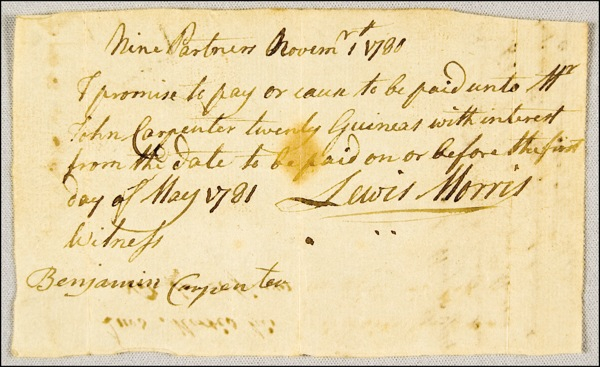 Nine Partners Novemʳ 1ᵗ 1780
I promise to pay or cause to be paid unto Mʳ
John Carpenter twenty Guineas with interest
from the date to be paid on or before the first
day of May 1781 Lewis Morris
Witness
Benjamin Carpenter